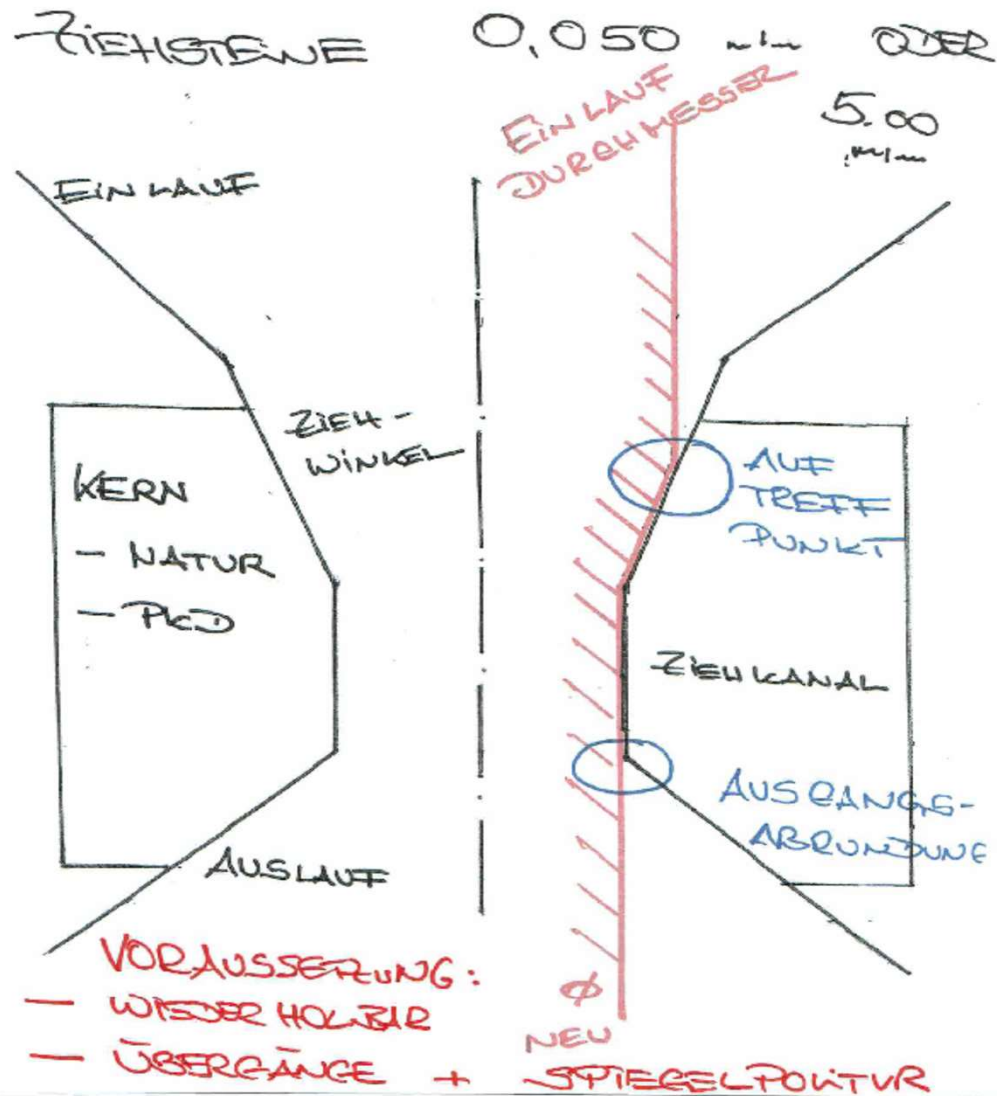 ZIEHSTEINE 0,050 m/m ODER
5.00
m/m
EINLAUF
DURCHMESSER
EINLAUF
ZIEH-
WINKEL
KERN
- NATUR
- PKD
AUF
TREFF
PUNKT
ZIEHKANAL
AUSGANGS-
ABRUNDUNG
AUSLAUF
VORAUSSETZUNG:
- WIEDERHOLBAR
- ÜBERGÄNGE + SPIEGELPOLITUR
Ø
NEU